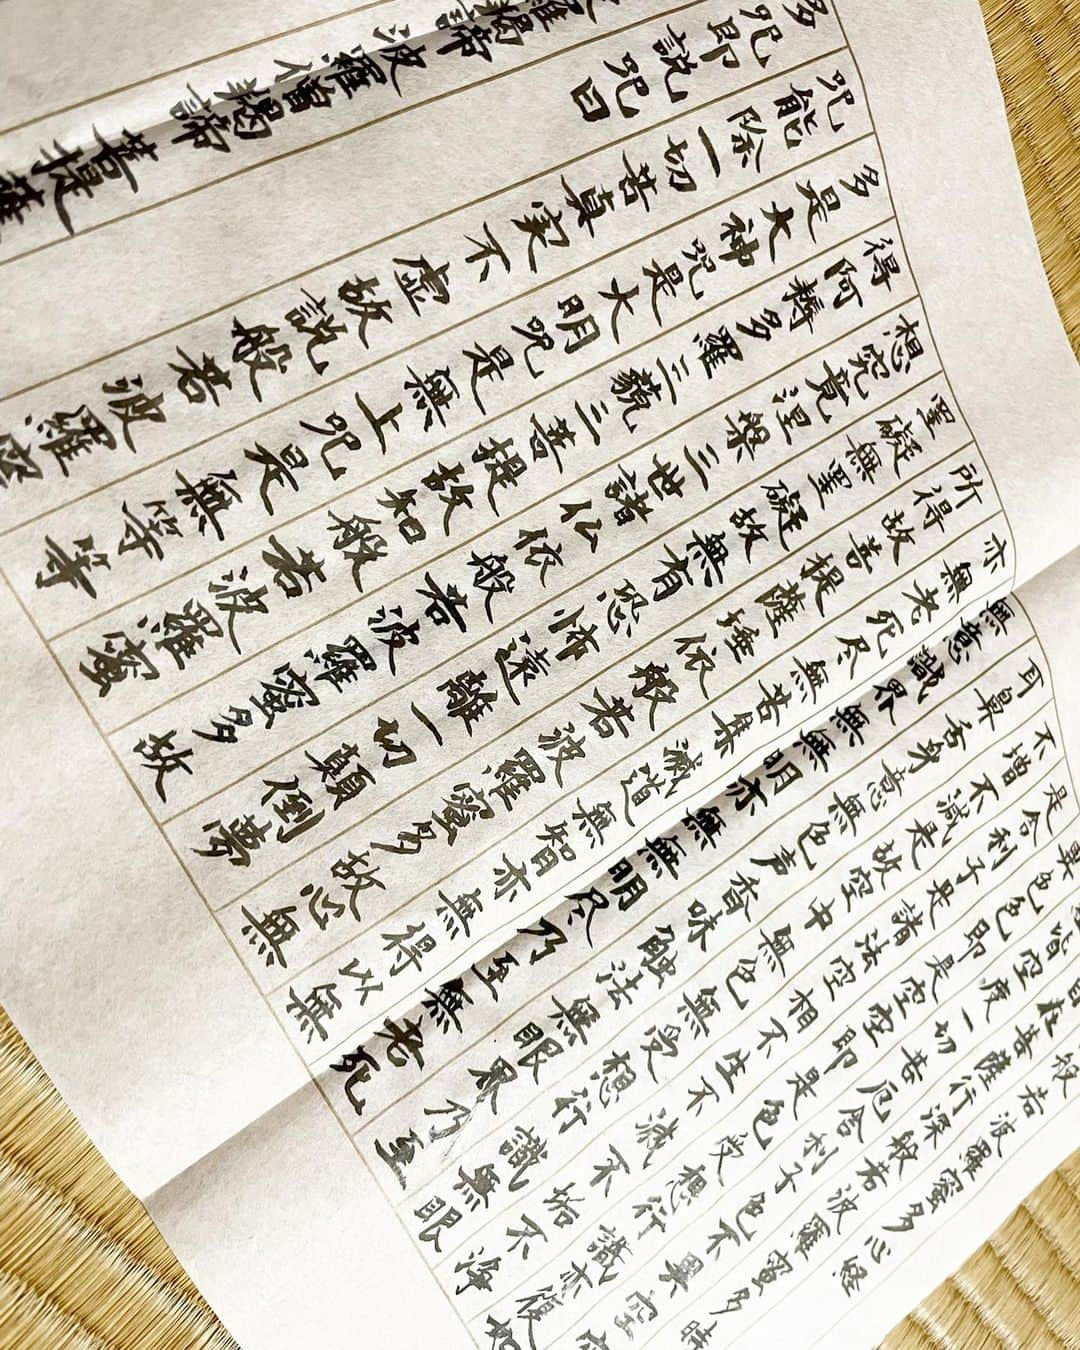 般若波羅蜜多心経
自在菩薩行深般若波羅蜜多時
皆空度一切苦厄舎利子色不異空空
異色色即是空空即是色受想行識亦復如
是舎利子是諸法空相不生不滅不垢不浄
不増不減是故空中無色無受想行識無眼
耳鼻舌身意無色声香味触法無眼界乃至
無意識界無無明亦無無明尽乃至無老死
亦無老死尽無苦集滅道無智亦無得以無
所得故菩提薩埵依般若波羅蜜多故心無
罣礙無罣礙故無有恐怖遠離一切顛倒夢
想究竟涅槃三世諸仏依般若波羅蜜多故
得阿耨多羅三藐三菩提故知般若波羅蜜
多是大神咒是大明咒是無上咒是無等等
咒能除一切苦真実不虚故説般若波羅蜜
多咒即説咒曰
羅羯諦 波羅僧羯諦 菩提薩